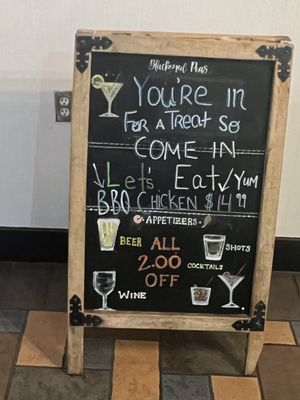 Blackeyed Peas
You're in
For a Treat so
COME IN
Let's Eat Yum
BBQ Chicken $14.99
APPETIZERS
BEER ALL SHOTS
2.00 COCKTAILS
OFF
WINE